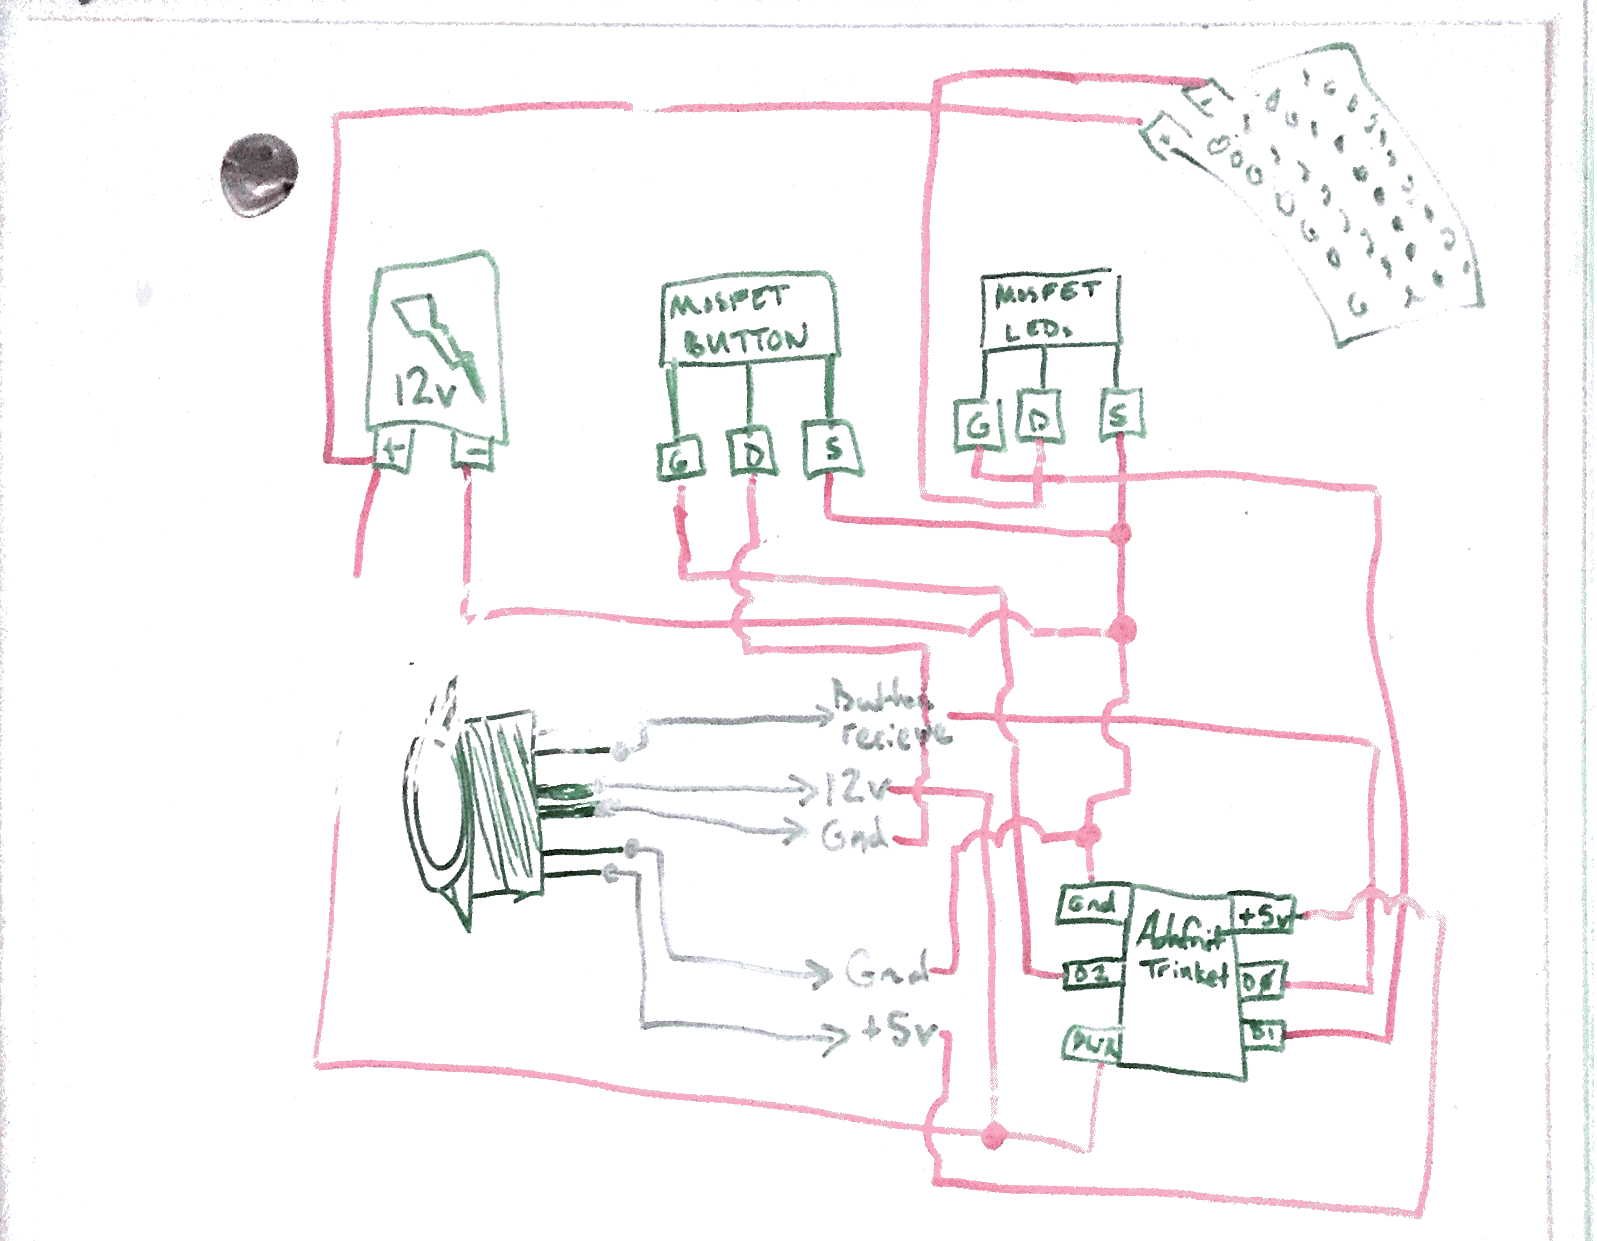 -
+
12v
+
-
MOSFET
BUTTON
G
D
S
MOSFET
LEDs
G
D
S
Button
recieve
12v
Gnd
Gnd
+5v
Gnd
D2
PWR
Adafruit
Trinket
+5v
D0
D1